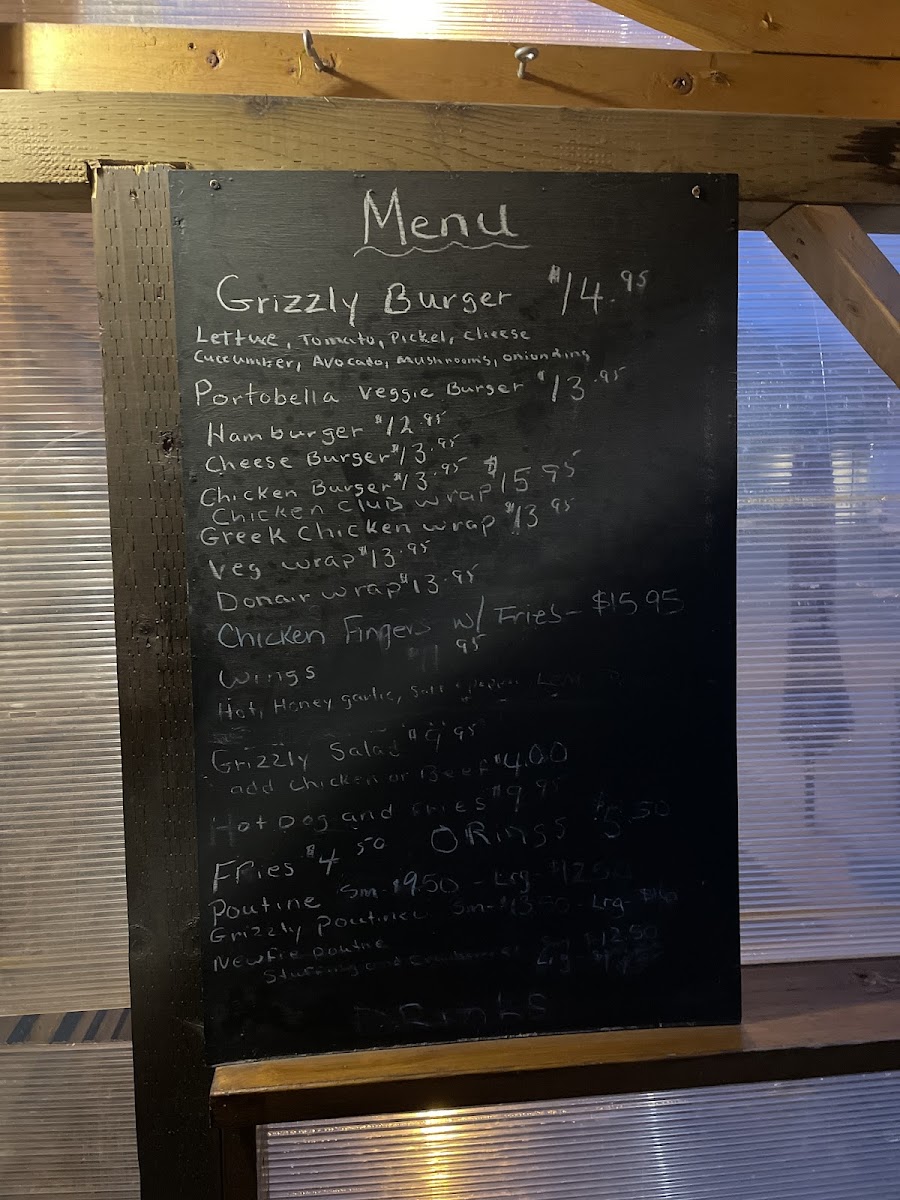 Menu
Grizzly Burger $14.95
Lettuce, Tomato, Pickel, cheese
Cuccumber, Avocado, Mushrooms, onion Ring
Portobella Veggie Burger $13.95
Hamburger $12.95
Cheese Burger $13.95
Chicken Burger $13.95
Chicken Club wrap $15.95
Greek Chicken wrap $13.95
Veg wrap $13.95
Donair wrap $13.95
Chicken Fingers w/ Fries- $15.95
Wings .95
Hot, Honey garlic, Salt & pepper,
Grizzly Salad $9.95
add chicken or Beef $4.00
Hot Dog and Fries $9.95
Fries $4.50 O Rings $5.50
Poutine Sm- $9.50 - Lrg- $12.50
Grizzly Poutine Sm- $13.50 - Lrg- $16
Newfie poutine Sm $12.50
Stuffing and Lrg-
DRinks